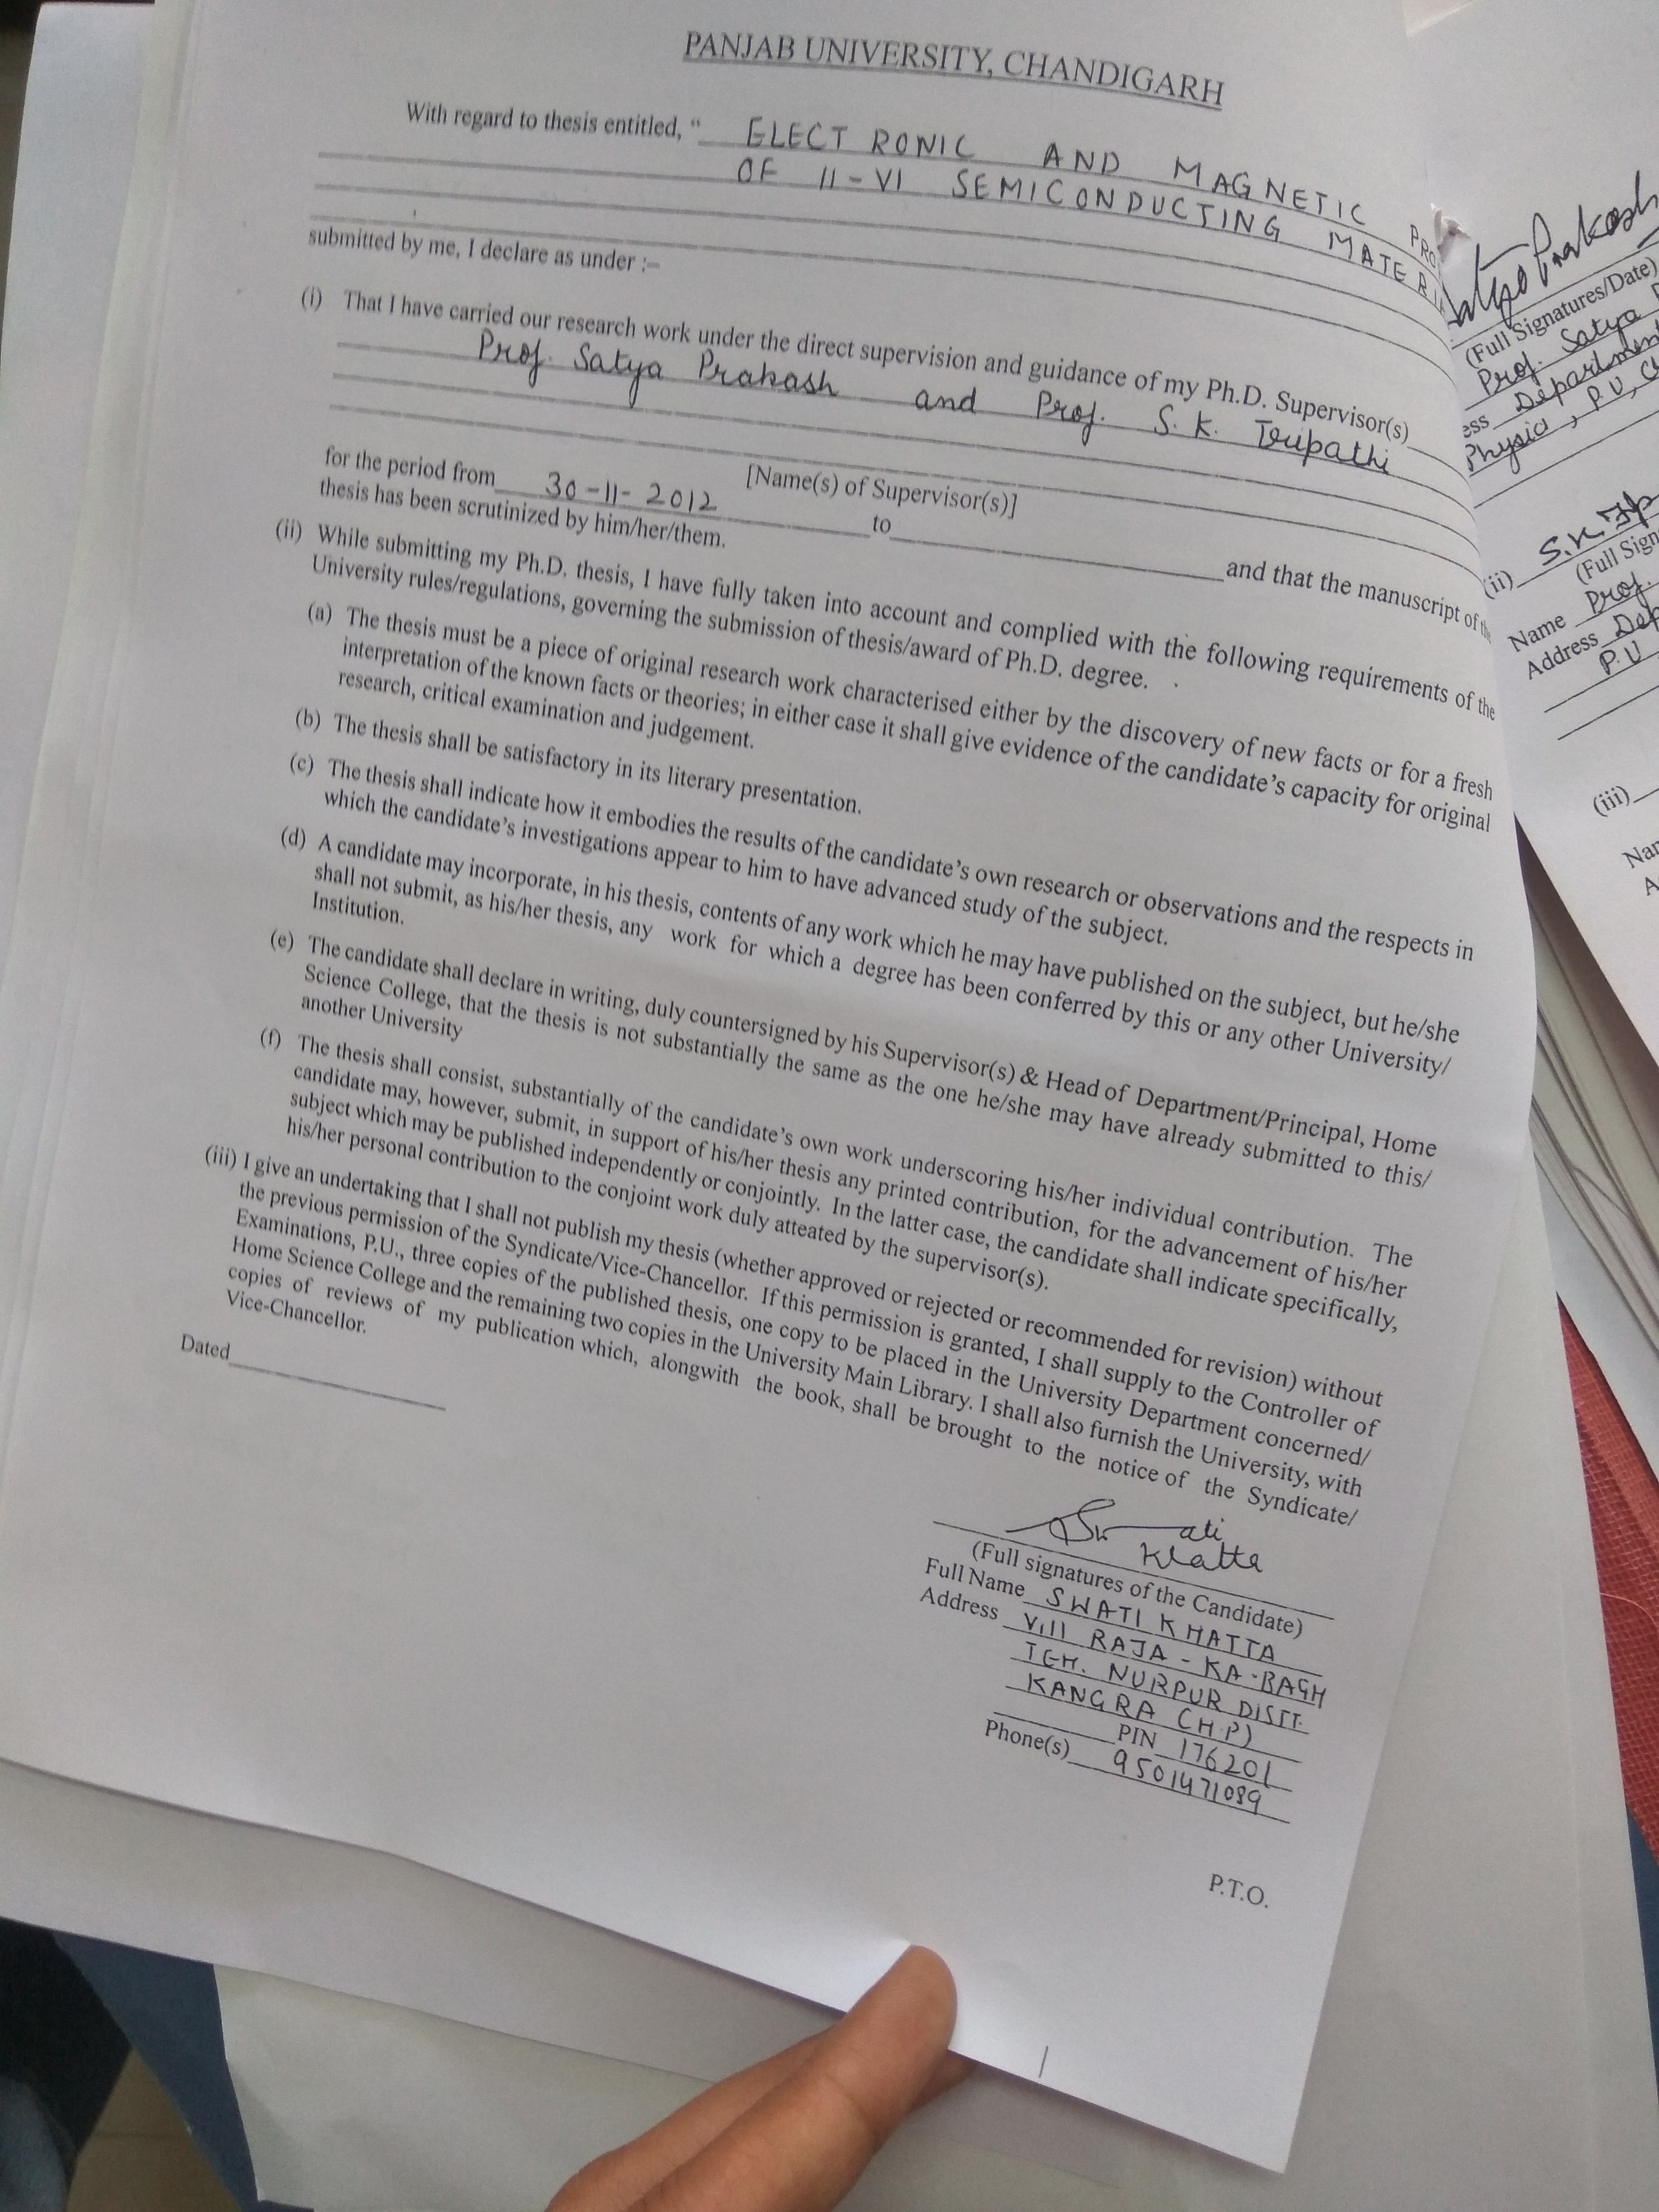 PANJAB UNIVERSITY, CHANDIGARH
With regard to thesis entitled, “ ELECTRONIC AND MAGNETIC PRO
OF II-VI SEMICONDUCTING MATERI
submitted by me, I declare as under :–
(i) That I have carried our research work under the direct supervision and guidance of my Ph.D. Supervisor(s)
Prof. Satya Prakash and Prof. S. K. Tripathi
[Name(s) of Supervisor(s)]
for the period from 30-11-2012 to and that the manuscript of the
thesis has been scrutinized by him/her/them.
(ii) While submitting my Ph.D. thesis, I have fully taken into account and complied with the following requirements of the
University rules/regulations, governing the submission of thesis/award of Ph.D. degree.
(a) The thesis must be a piece of original research work characterised either by the discovery of new facts or for a fresh
interpretation of the known facts or theories; in either case it shall give evidence of the candidate’s capacity for original
research, critical examination and judgement.
(b) The thesis shall be satisfactory in its literary presentation.
(c) The thesis shall indicate how it embodies the results of the candidate’s own research or observations and the respects in
which the candidate’s investigations appear to him to have advanced study of the subject.
(d) A candidate may incorporate, in his thesis, contents of any work which he may have published on the subject, but he/she
shall not submit, as his/her thesis, any work for which a degree has been conferred by this or any other University/
Institution.
(e) The candidate shall declare in writing, duly countersigned by his Supervisor(s) & Head of Department/Principal, Home
Science College, that the thesis is not substantially the same as the one he/she may have already submitted to this/
another University
(f) The thesis shall consist, substantially of the candidate’s own work underscoring his/her individual contribution. The
candidate may, however, submit, in support of his/her thesis any printed contribution, for the advancement of his/her
subject which may be published independently or conjointly. In the latter case, the candidate shall indicate specifically,
his/her personal contribution to the conjoint work duly atteated by the supervisor(s).
(iii) I give an undertaking that I shall not publish my thesis (whether approved or rejected or recommended for revision) without
the previous permission of the Syndicate/Vice-Chancellor. If this permission is granted, I shall supply to the Controller of
Examinations, P.U., three copies of the published thesis, one copy to be placed in the University Department concerned/
Home Science College and the remaining two copies in the University Main Library. I shall also furnish the University, with
copies of reviews of my publication which, alongwith the book, shall be brought to the notice of the Syndicate/
Vice-Chancellor.
Dated
Swati
Khatta
(Full signatures of the Candidate)
Full Name SWATI KHATTA
Address Vill RAJA-KA-BAGH
TEH. NURPUR DISTT.
KANGRA (H.P)
PIN 176201
Phone(s) 9501471089
P.T.O.
Satya Prakash
(Full Signatures/Date)
Prof. Satya
Department
Physics, P.U, Ch
(ii) S.K. 
(Full Sign
Name Prof.
Address Dep
P.U
(iii)